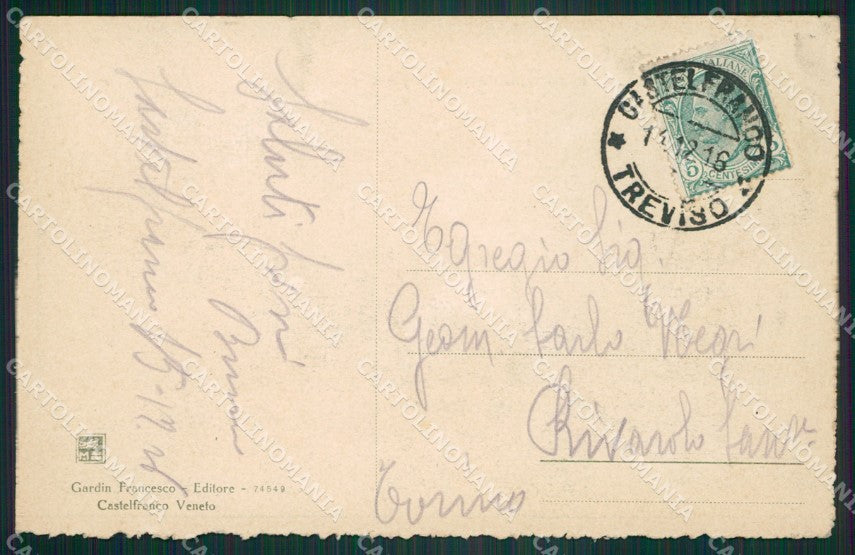 Saluti cari
Castelfranco 15-12.16
Egregio Sig.
Geom Carlo Negri
Rivarolo Canv.
Torino
CASTELFRANCO
TREVISO
ITALIANE
5
CENTESIMI
Gardin Francesco - Editore - 74549
Castelfranco Veneto
CARTOLINOMANIA